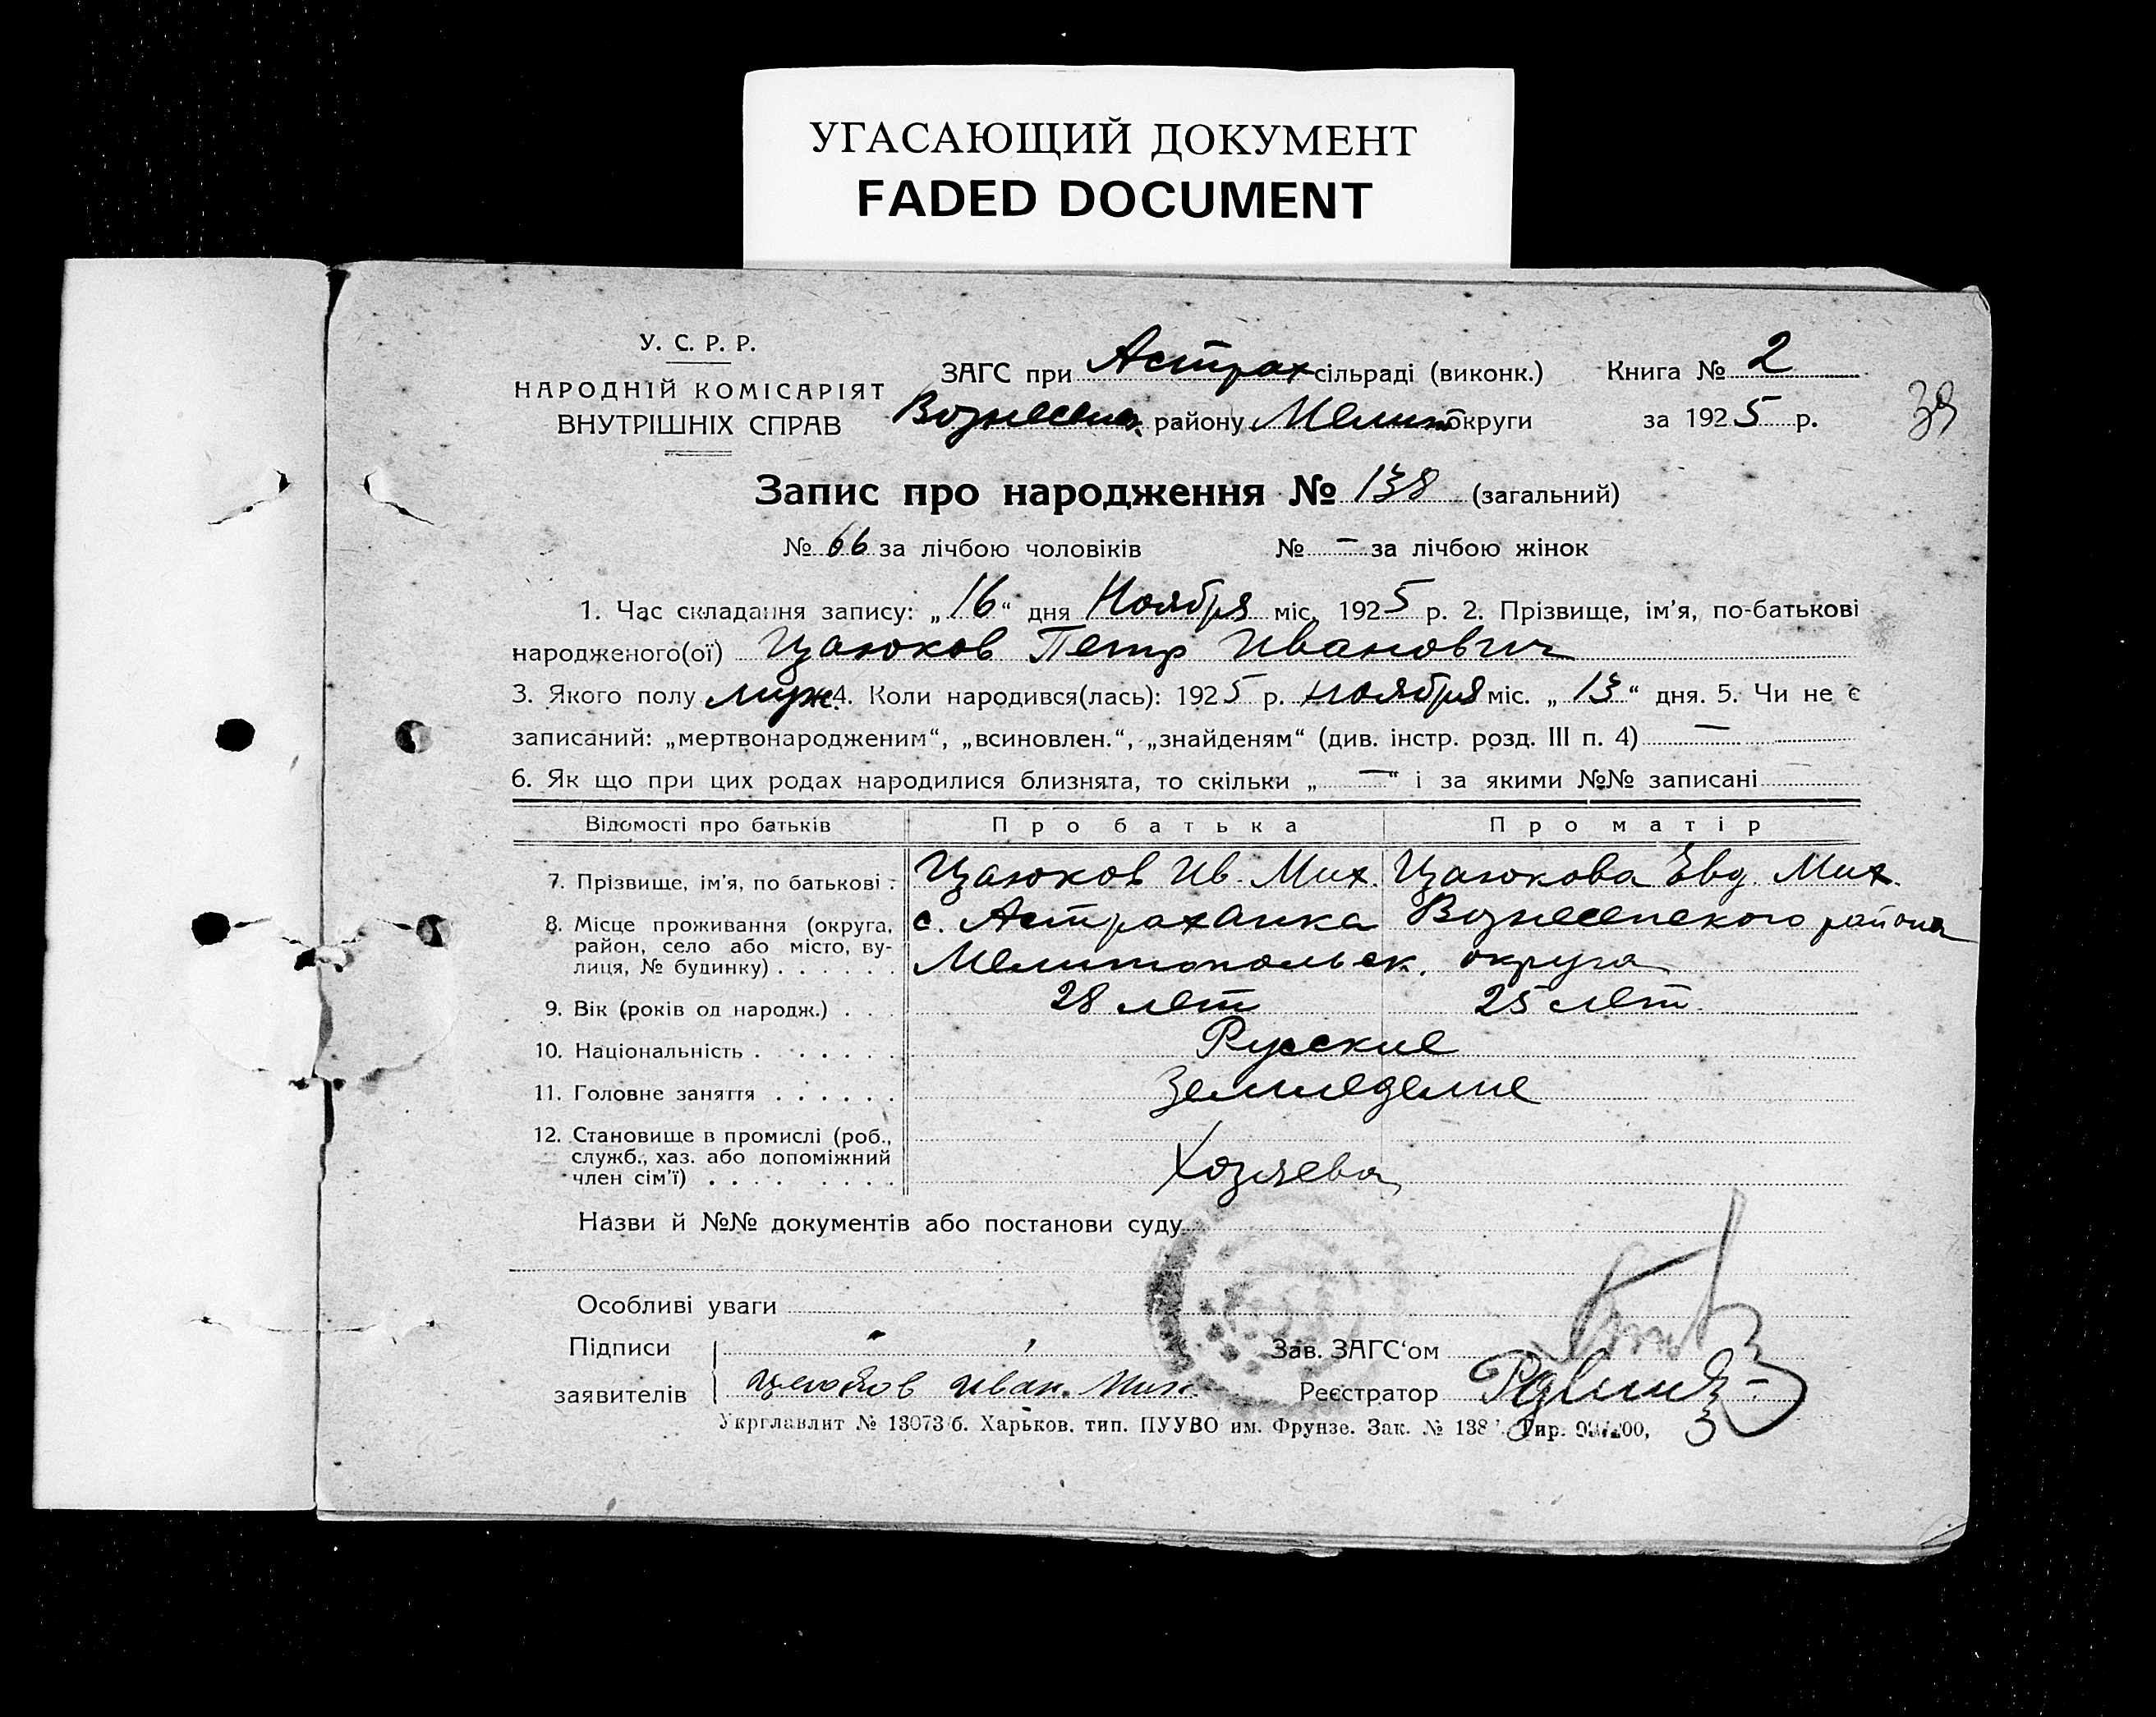 УГАСАЮЩИЙ ДОКУМЕНТ
FADED DOCUMENT
У. С. Р. Р.
НАРОДНІЙ КОМІСАРІЯТ
ВНУТРІШНІХ СПРАВ
ЗАГС при Астрах сільраді (виконк.)
Вознесенс. району Мелит округи
Книга № 2
за 1925 р.
39
Запис про народження № 138 (загальний)
№ 66 за лічбою чоловіків № — за лічбою жінок
1. Час складання запису: „16“ дня Ноября міс. 1925 р. 2. Прізвище, ім'я, по-батькові
народженого(ої) Цаюков Петр Иванович
3. Якого полу муж. 4. Коли народився(лась): 1925 р. ноября міс. „13“ дня. 5. Чи не є
записаний: „мертвонародженим“, „всиновлен.“, „знайденям“ (див. інстр. розд. III п. 4) —
6. Як що при цих родах народилися близнята, то скільки „—“ і за якими №№ записані
Відомості про батьків Про батька Про матір
7. Прізвище, ім'я, по батькові : Цаюков Ив. Мих. Цаюкова Евд. Мих.
8. Місце проживання (округа, с. Астраханка Вознесенского района
район, село або місто, ву-
лиця, № будинку) . . . . . . Мелитопольск. округа
9. Вік (років од народж.) . . . 28 лет 25 лет.
10. Національність . . . . . . . Русские
11. Головне заняття . . . . . . Земледелие
12. Становище в промислі (роб.,
служб., хаз. або допоміжний
член сім'ї) . . . . . . . . Хозяева
Назви й №№ документів або постанови суду
Особливі уваги
Підписи
заявителів Иван. Мих.
Зав. ЗАГС'ом
Реєстратор
Укрглавлит № 13073/б. Харьков. тип. ПУУВО им. Фрунзе. Зак. № 138